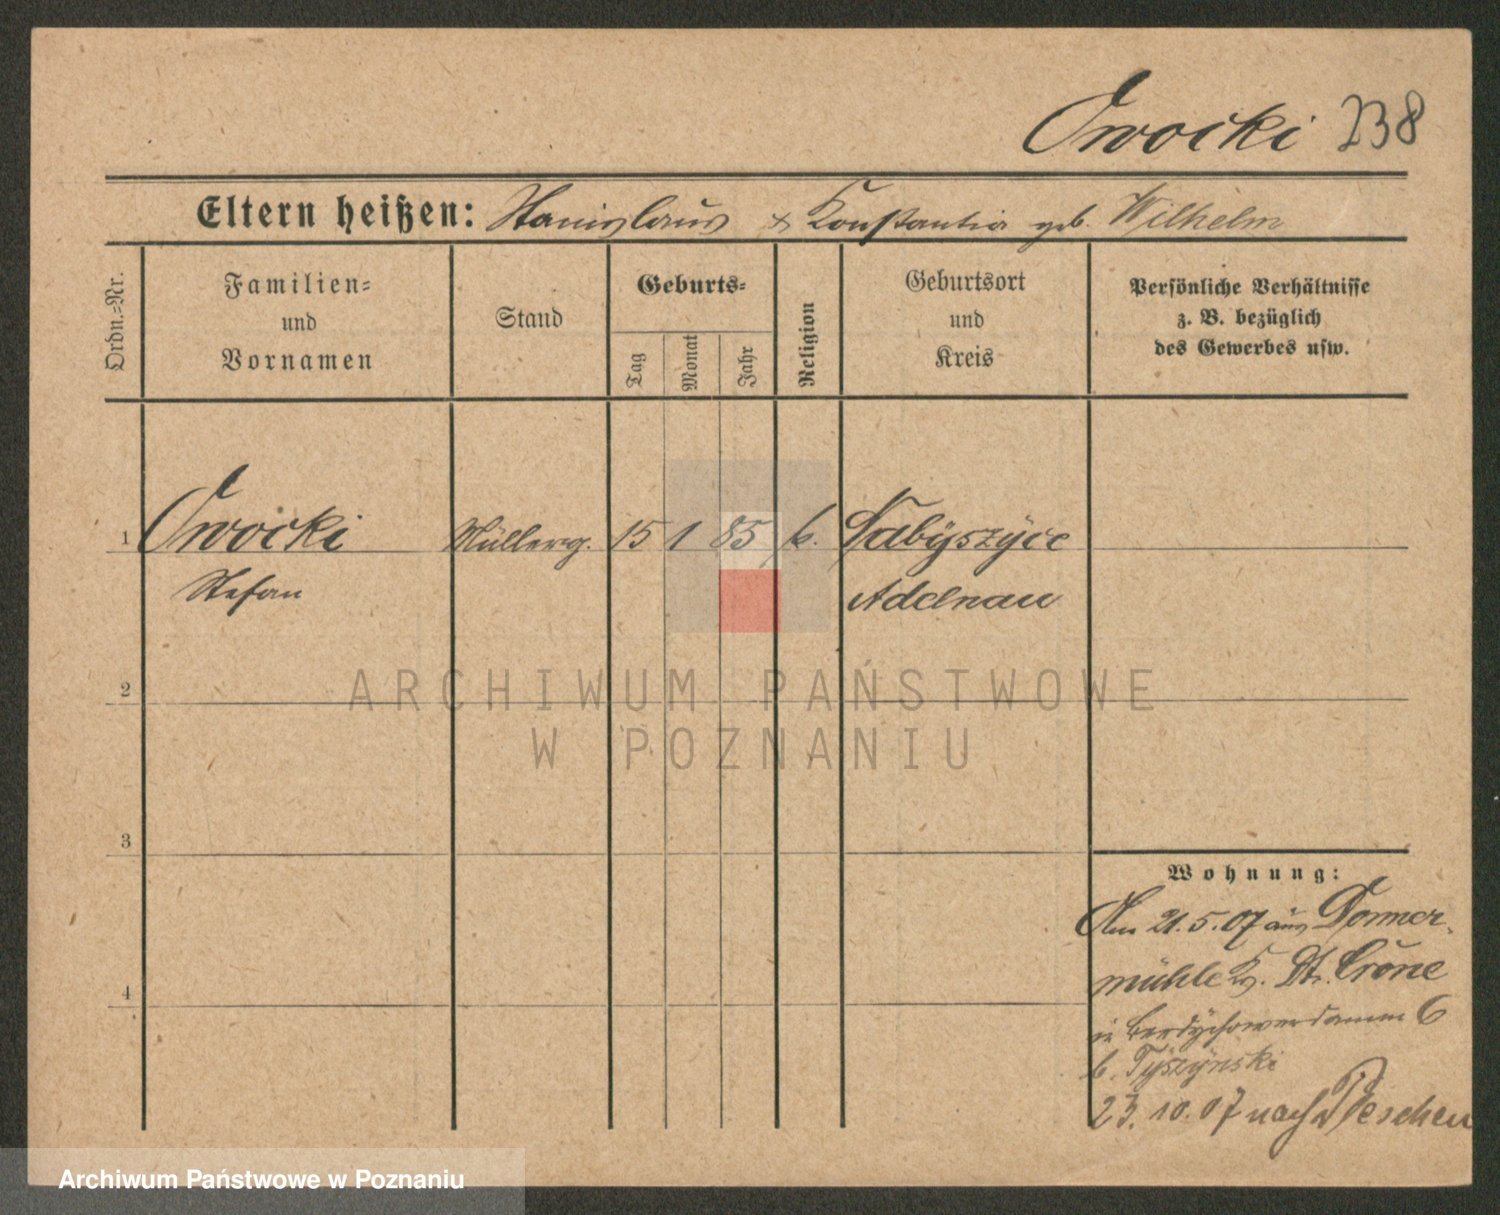 Owocki 238
Eltern heißen: Stanislaus & Konstantia geb. Wilhelm
Ordn.=Nr.
Familien=
und
Vornamen
Stand
Geburts=
Tag
Monat
Jahr
Religion
Geburtsort
und
Kreis
Persönliche Verhältnisse
z. B. bezüglich
des Gewerbes usw.
1 Owocki Müllerg. 15 1 85 k.
Stefan Adelnau
ARCHIWUM PAŃSTWOWE
2
W POZNANIU
3
Wohnung:
Am 21.5.07 aus Donner-
mühle Kr. Dt. Crone
4
in Berdychowerdamm 6
b. Tyszynski
23.10.07 nach Pleschen
Archiwum Państwowe w Poznaniu